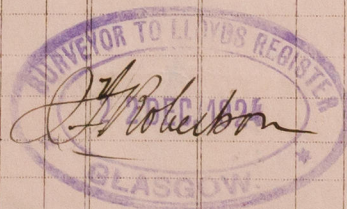 SURVEYOR TO LLOYDS REGISTER
22 DEC 1924
Robertson
GLASGOW.